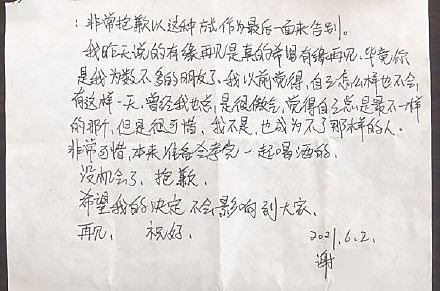 ：非常抱歉以这种方式作为最后一面来告别。
我昨天说的有缘再见是真的希望有缘再见，毕竟你
是我为数不多的朋友了。我以前觉得，自己怎么样也不会
有这样一天，曾经我也总是很傲气，觉得自己总是最不一样
的那个，但是很可惜，我不是，也成为不了那样的人。
非常可惜，本来准备会考完一起喝酒的，
没机会了，抱歉，
希望我的决定不会影响到大家，
再见， 祝好，
2021.6.2.
谢